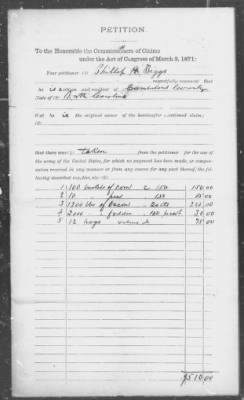 PETITION.
To the Honorable the Commissioners of Claims
under the Act of Congress of March 3, 1871:
Your petitioner Phillip H. Biggs
respectfully represents that
he is a citizen and resident of Cumberland County
State of North Carolina
that he is the original owner of the hereinafter mentioned claim;
that there were taken from the petitioner for the use of
the army of the United States, for which no payment has been made, or compen-
sation received in any manner or from any source for any part thereof, the fol-
lowing described supplies, etc.:
1 100 bushels of corn @ 1.50 150.00
2 10 1.50 15.00
3 1200 lbs of Bacon 20 cts 240.00
4 2000 " fodder 30.00
5 12 hogs 75.00
$510.00